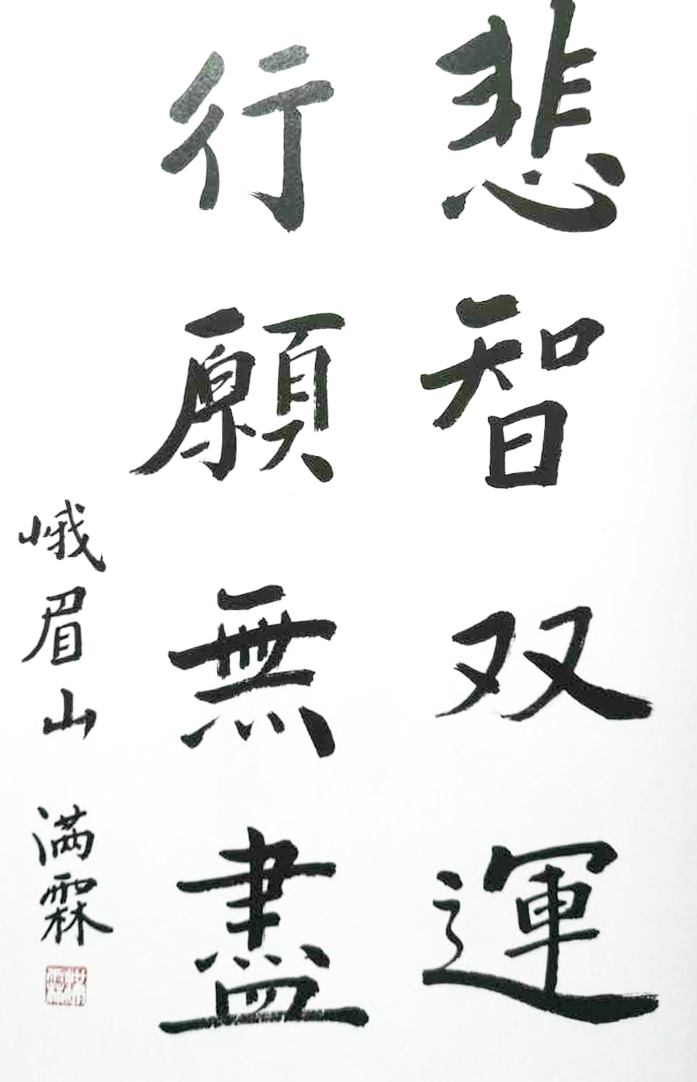 悲智双運
行願無盡
峨眉山 满霖